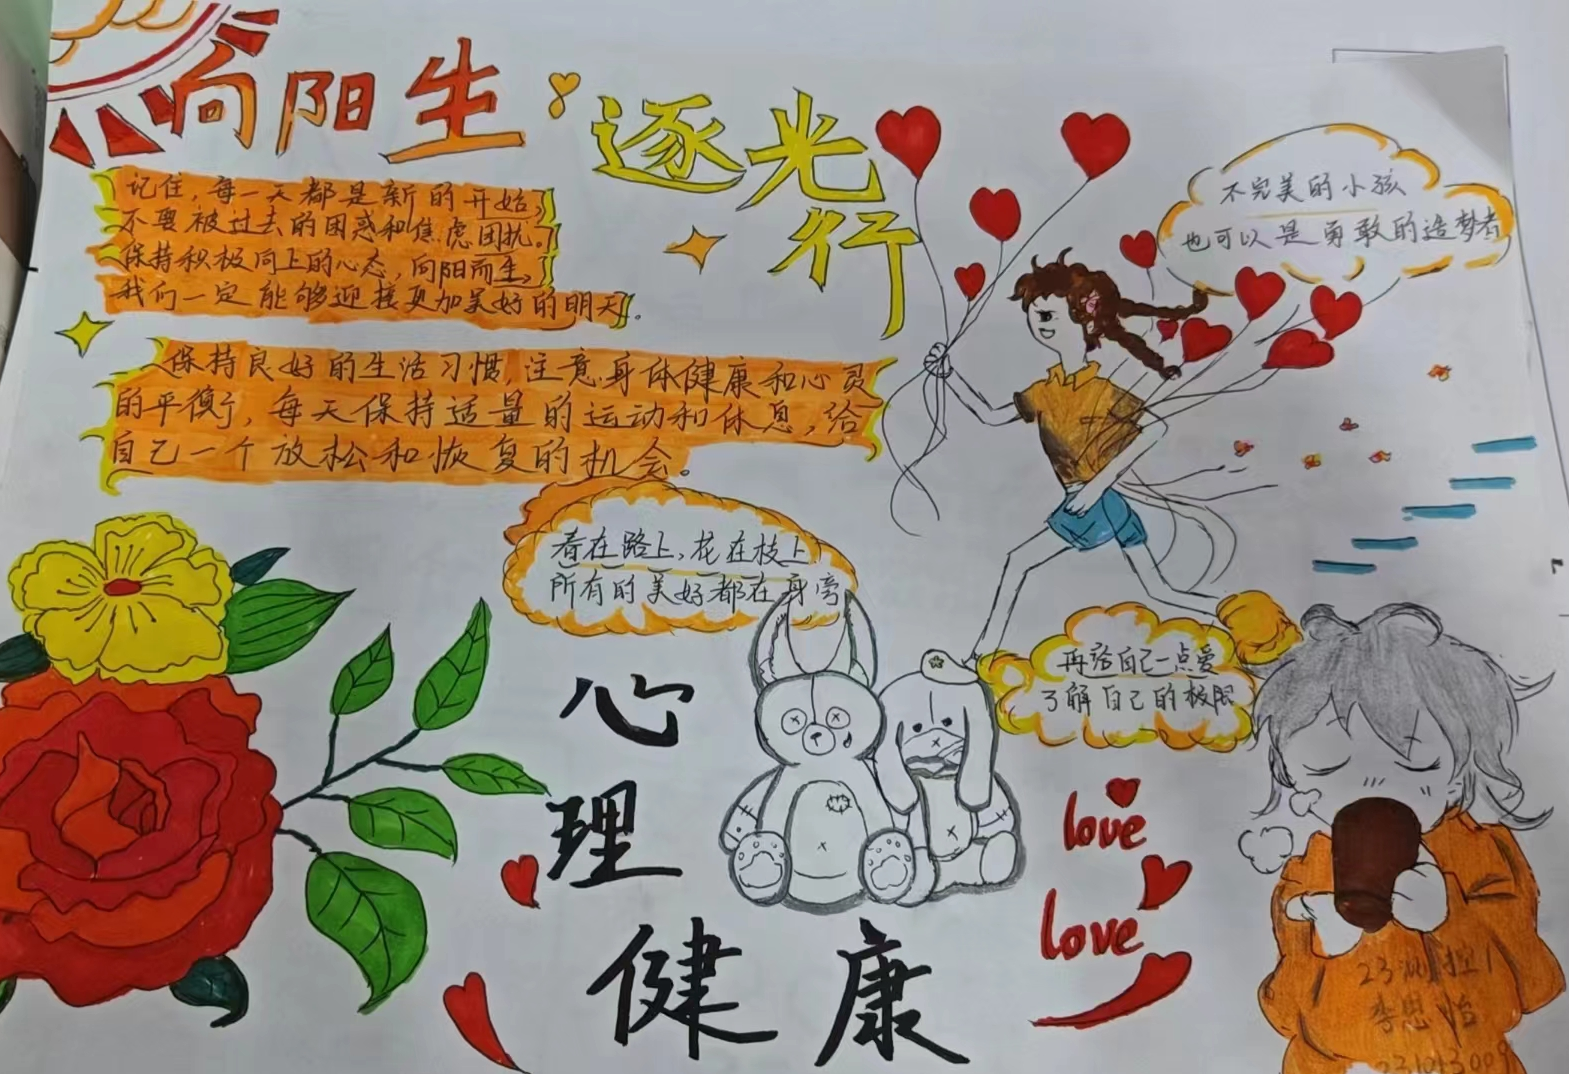 向阳生
逐光
行
记住，每一天都是新的开始，
不要被过去的困惑和焦虑困扰。
保持积极向上的心态，向阳而生，
我们一定能够迎接更加美好的明天。
保持良好的生活习惯，注意身体健康和心灵
的平衡，每天保持适量的运动和休息，给
自己一个放松和恢复的机会。
不完美的小孩
也可以是勇敢的造梦者
看在路上，花在枝上
所有的美好都在身旁
再给自己一点爱
了解自己的极限
心
理
健康
love
love
23测控1
李思怡
231013009